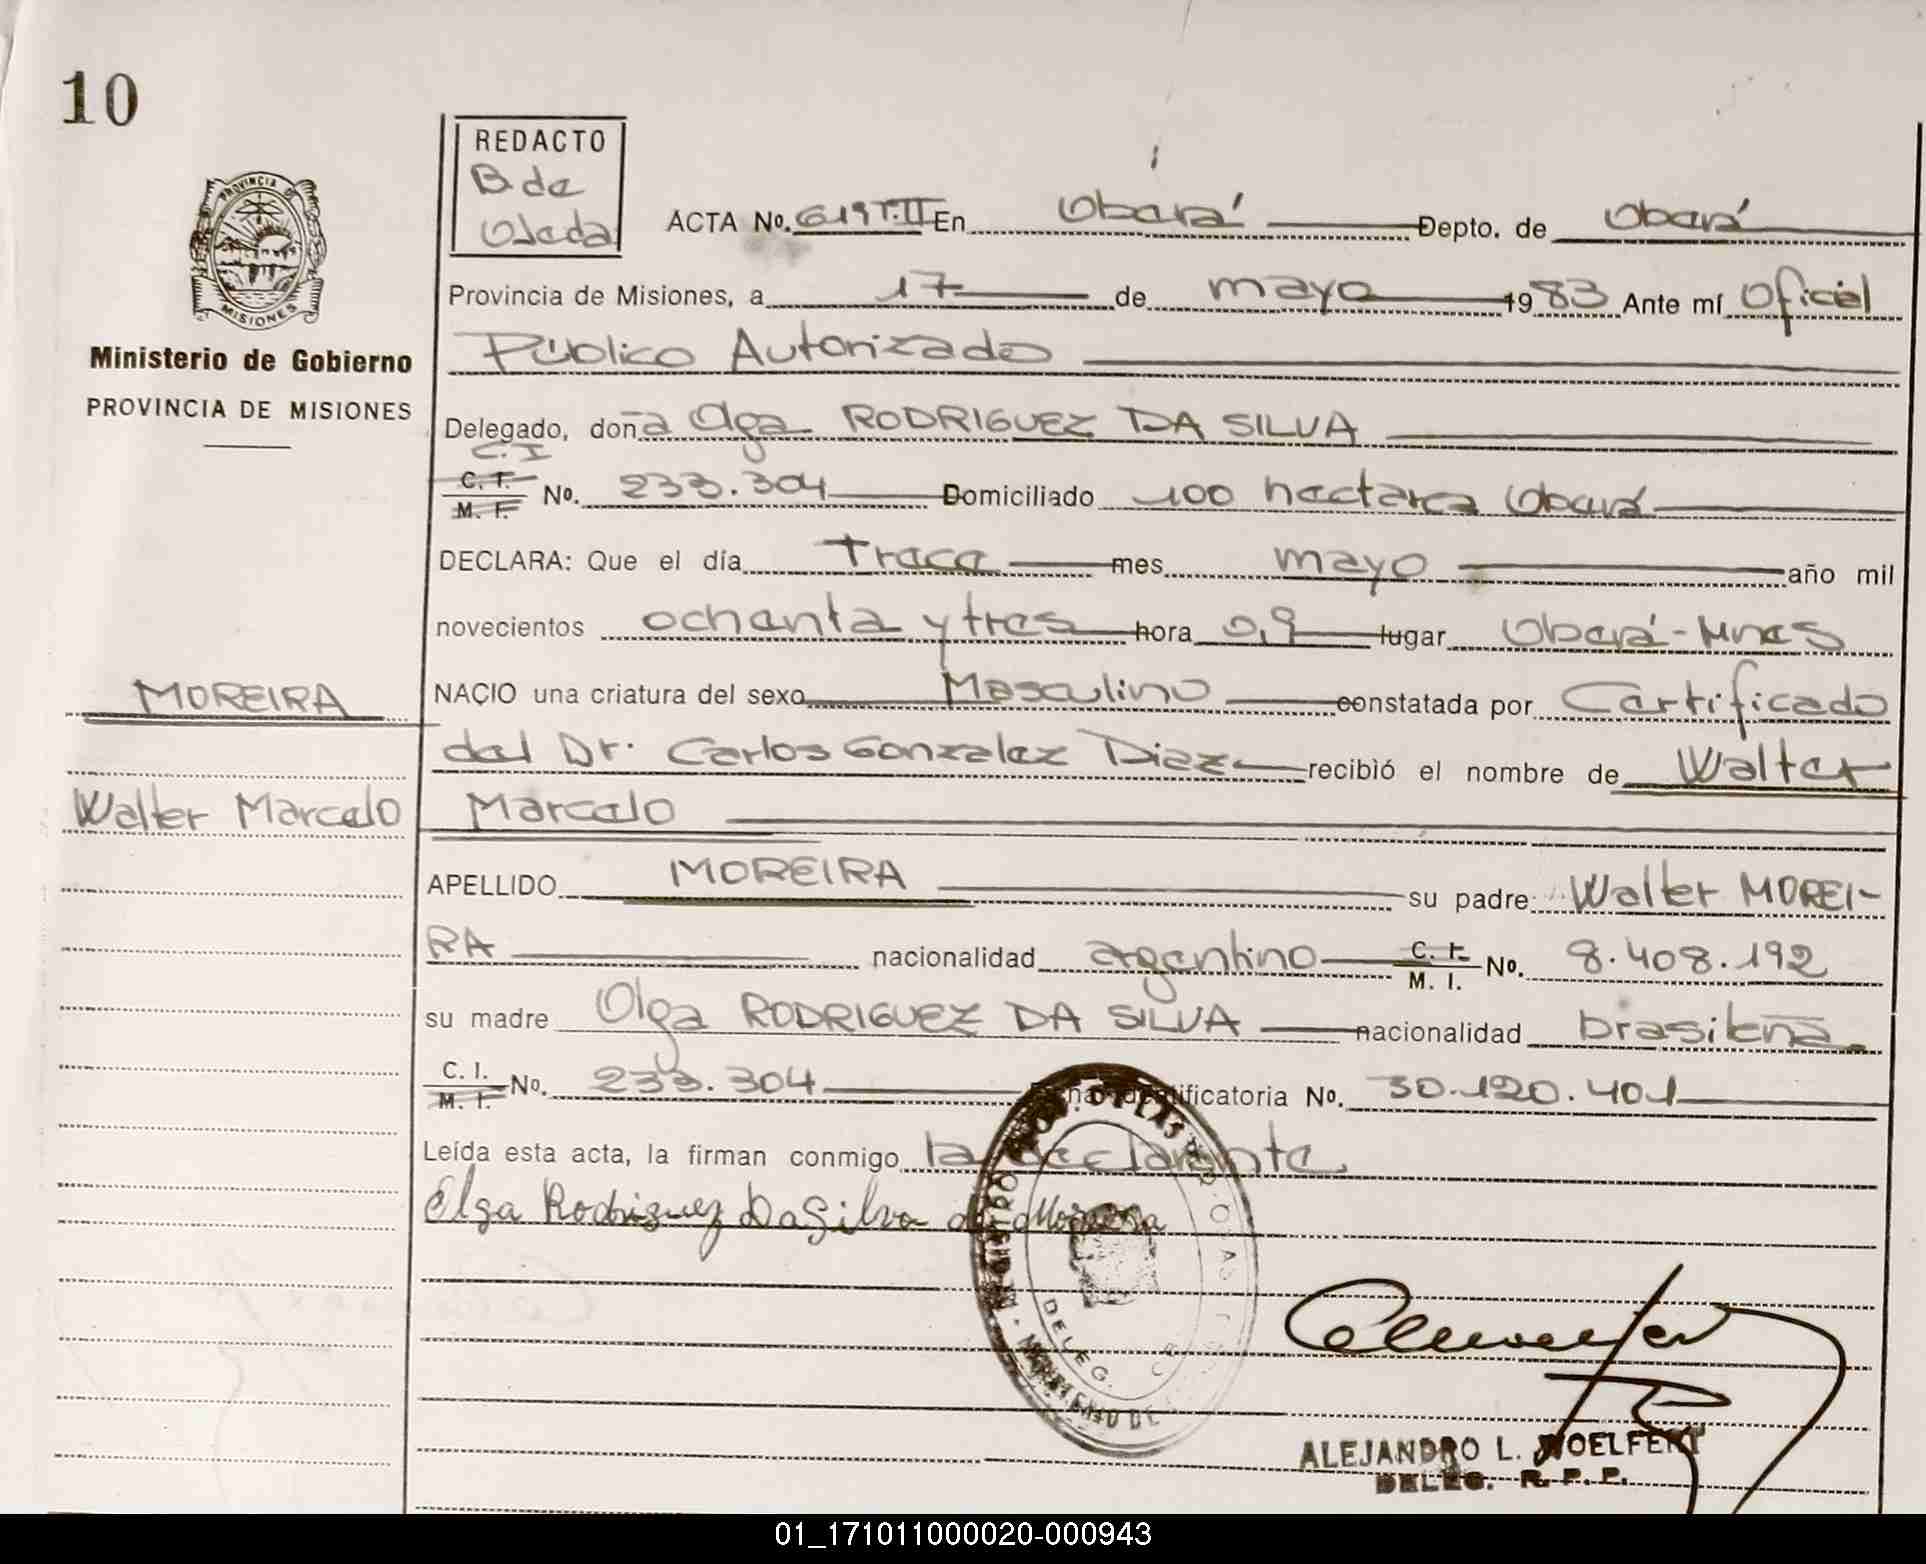 10
REDACTO
B. de
Ojeda
PROVINCIA DE
MISIONES
Ministerio de Gobierno
PROVINCIA DE MISIONES
ACTA No. 619 T.II En Oberá Depto. de Oberá
Provincia de Misiones, a 17 de mayo 1983 Ante mí Oficial
Público Autorizado
Delegado, doña Olga RODRIGUEZ DA SILVA
C.I
C. I. M. I. No. 233.304 Domiciliado 100 hectarea Oberá
DECLARA: Que el día trece mes mayo año mil
novecientos ochenta y tres hora 0,9 lugar Oberá-Mnes
MOREIRA
NACIO una criatura del sexo Masculino constatada por Certificado
del Dr. Carlos Gonzalez Diaz recibió el nombre de Walter
Walter Marcelo
Marcelo
APELLIDO MOREIRA su padre Walter MOREI-
RA nacionalidad argentino C. I. M. I. No. 8.408.192
su madre Olga RODRIGUEZ DA SILVA nacionalidad brasileña
C. I. M. I. No. 233.304 identificatoria No. 30.120.401
Leída esta acta, la firman conmigo la declarante
Elga Rodriguez DaSilva de Moreira
DELEG.
ALEJANDRO L. WOELFERT
DELEG. R. P. P.
01_171011000020-000943